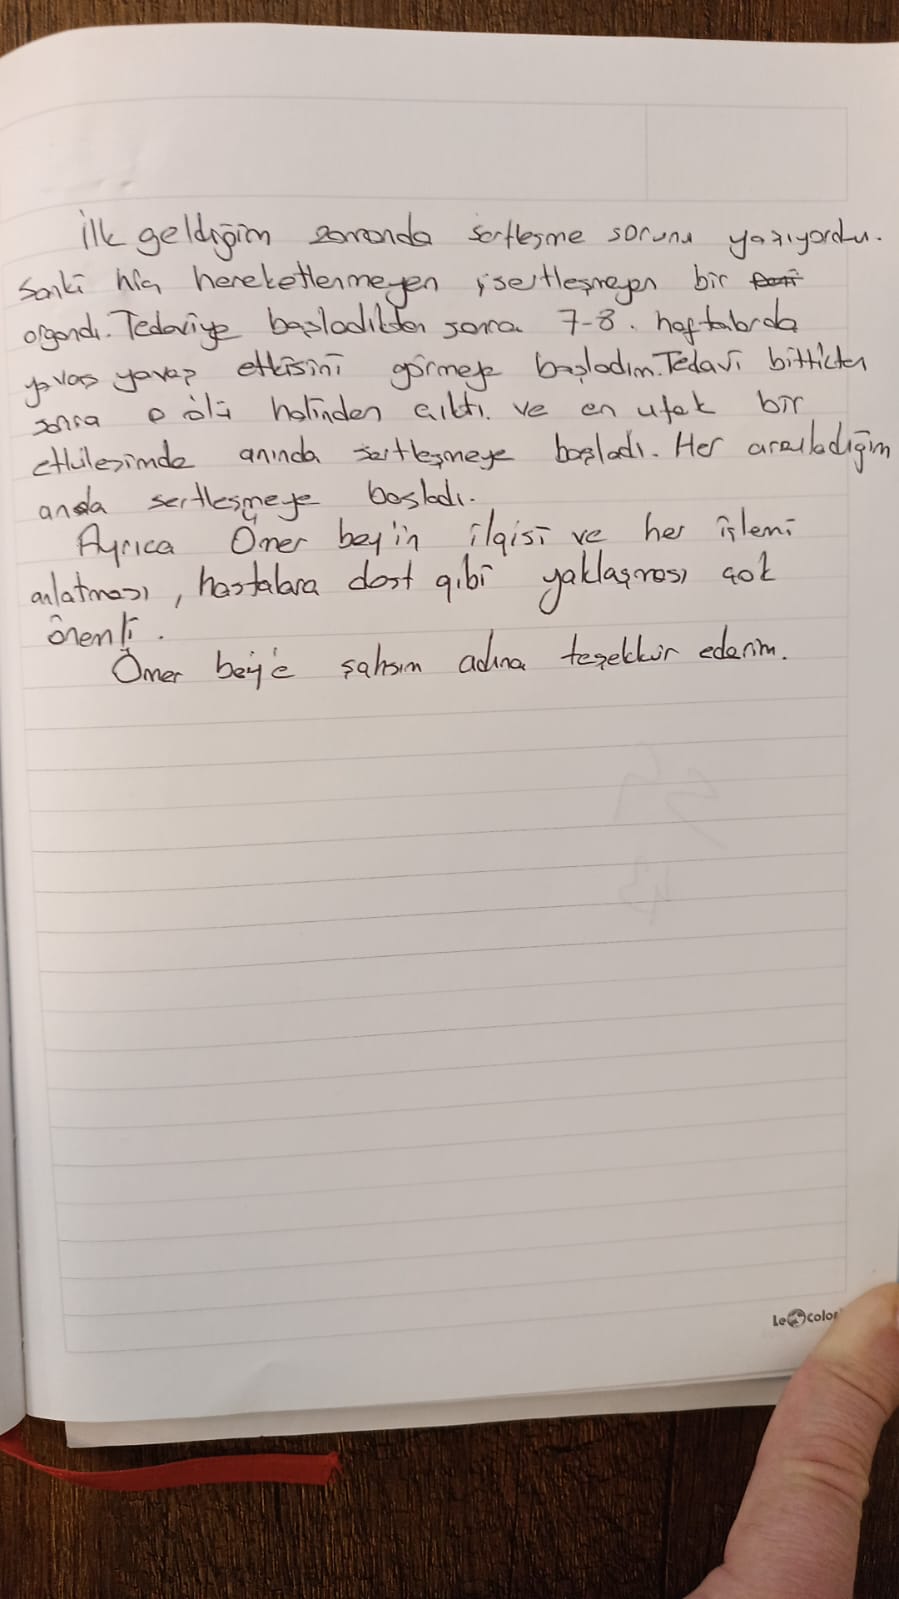 İlk geldiğim zamanda sertleşme sorunu yaşıyordu.
Sanki hiç hereketlenmeyen, sertleşmeyen bir
organdı. Tedaviye başladıktan sonra 7-8. haftalarda
yavaş yavaş etkisini görmeye başladım. Tedavi bittikten
sonra o ölü halinden çıktı. ve en ufak bir
etkileşimde anında sertleşmeye başladı. Her arzuladığım
anda sertleşmeye başladı.
Ayrıca Ömer bey'in ilgisi ve her işlemi
anlatması, hastalara dost gibi yaklaşması çok
önemli.
Ömer bey'e şahsım adına teşekkür ederim.
Le color